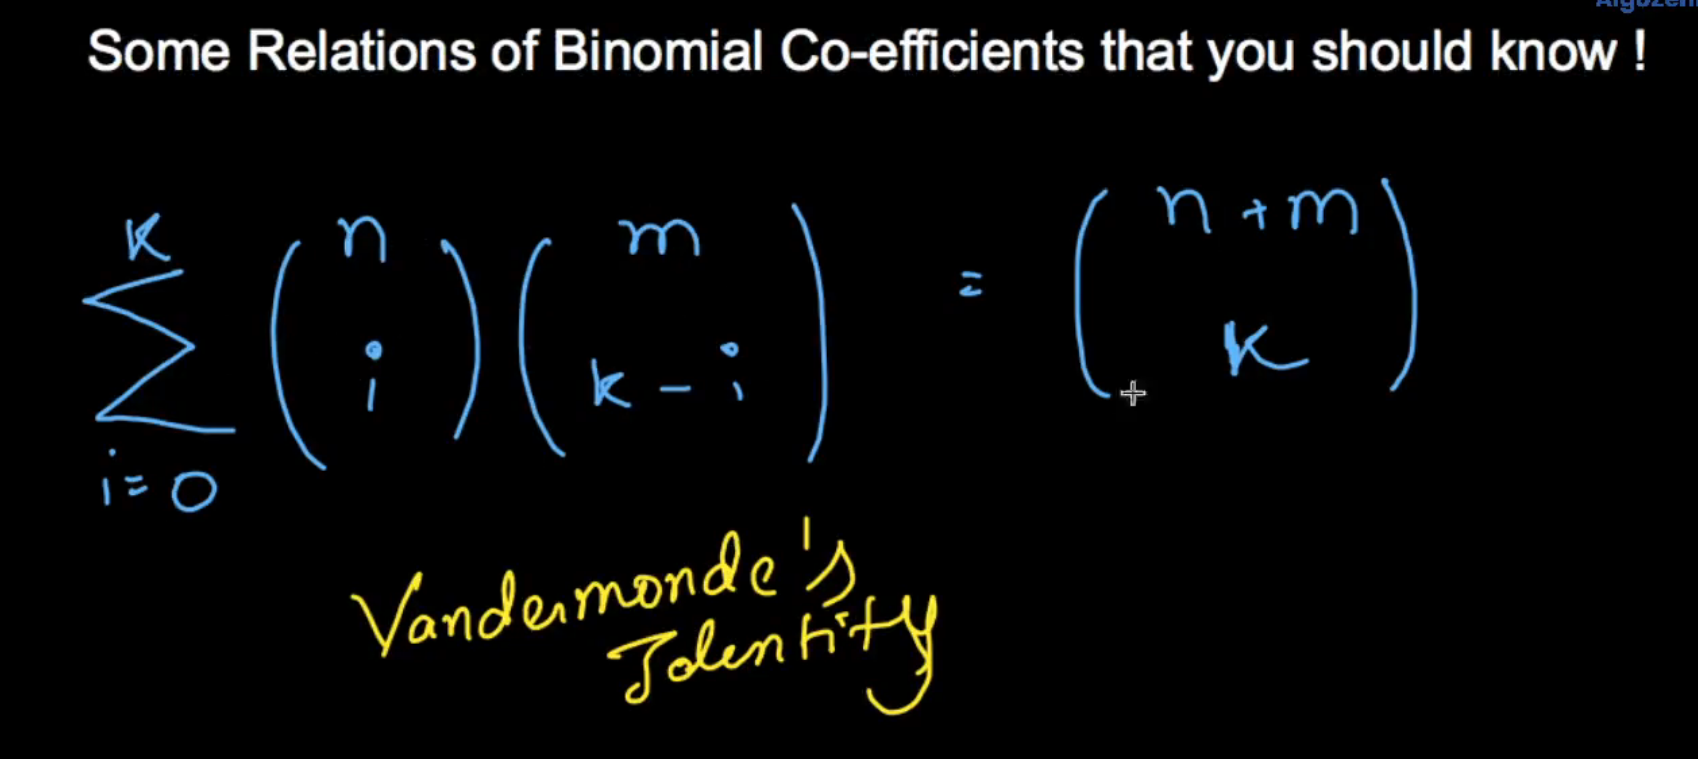 Some Relations of Binomial Co-efficients that you should know !
K
∑ (n i) (m k - i) = (n + m K)
i = 0
Vandermonde's
Identity